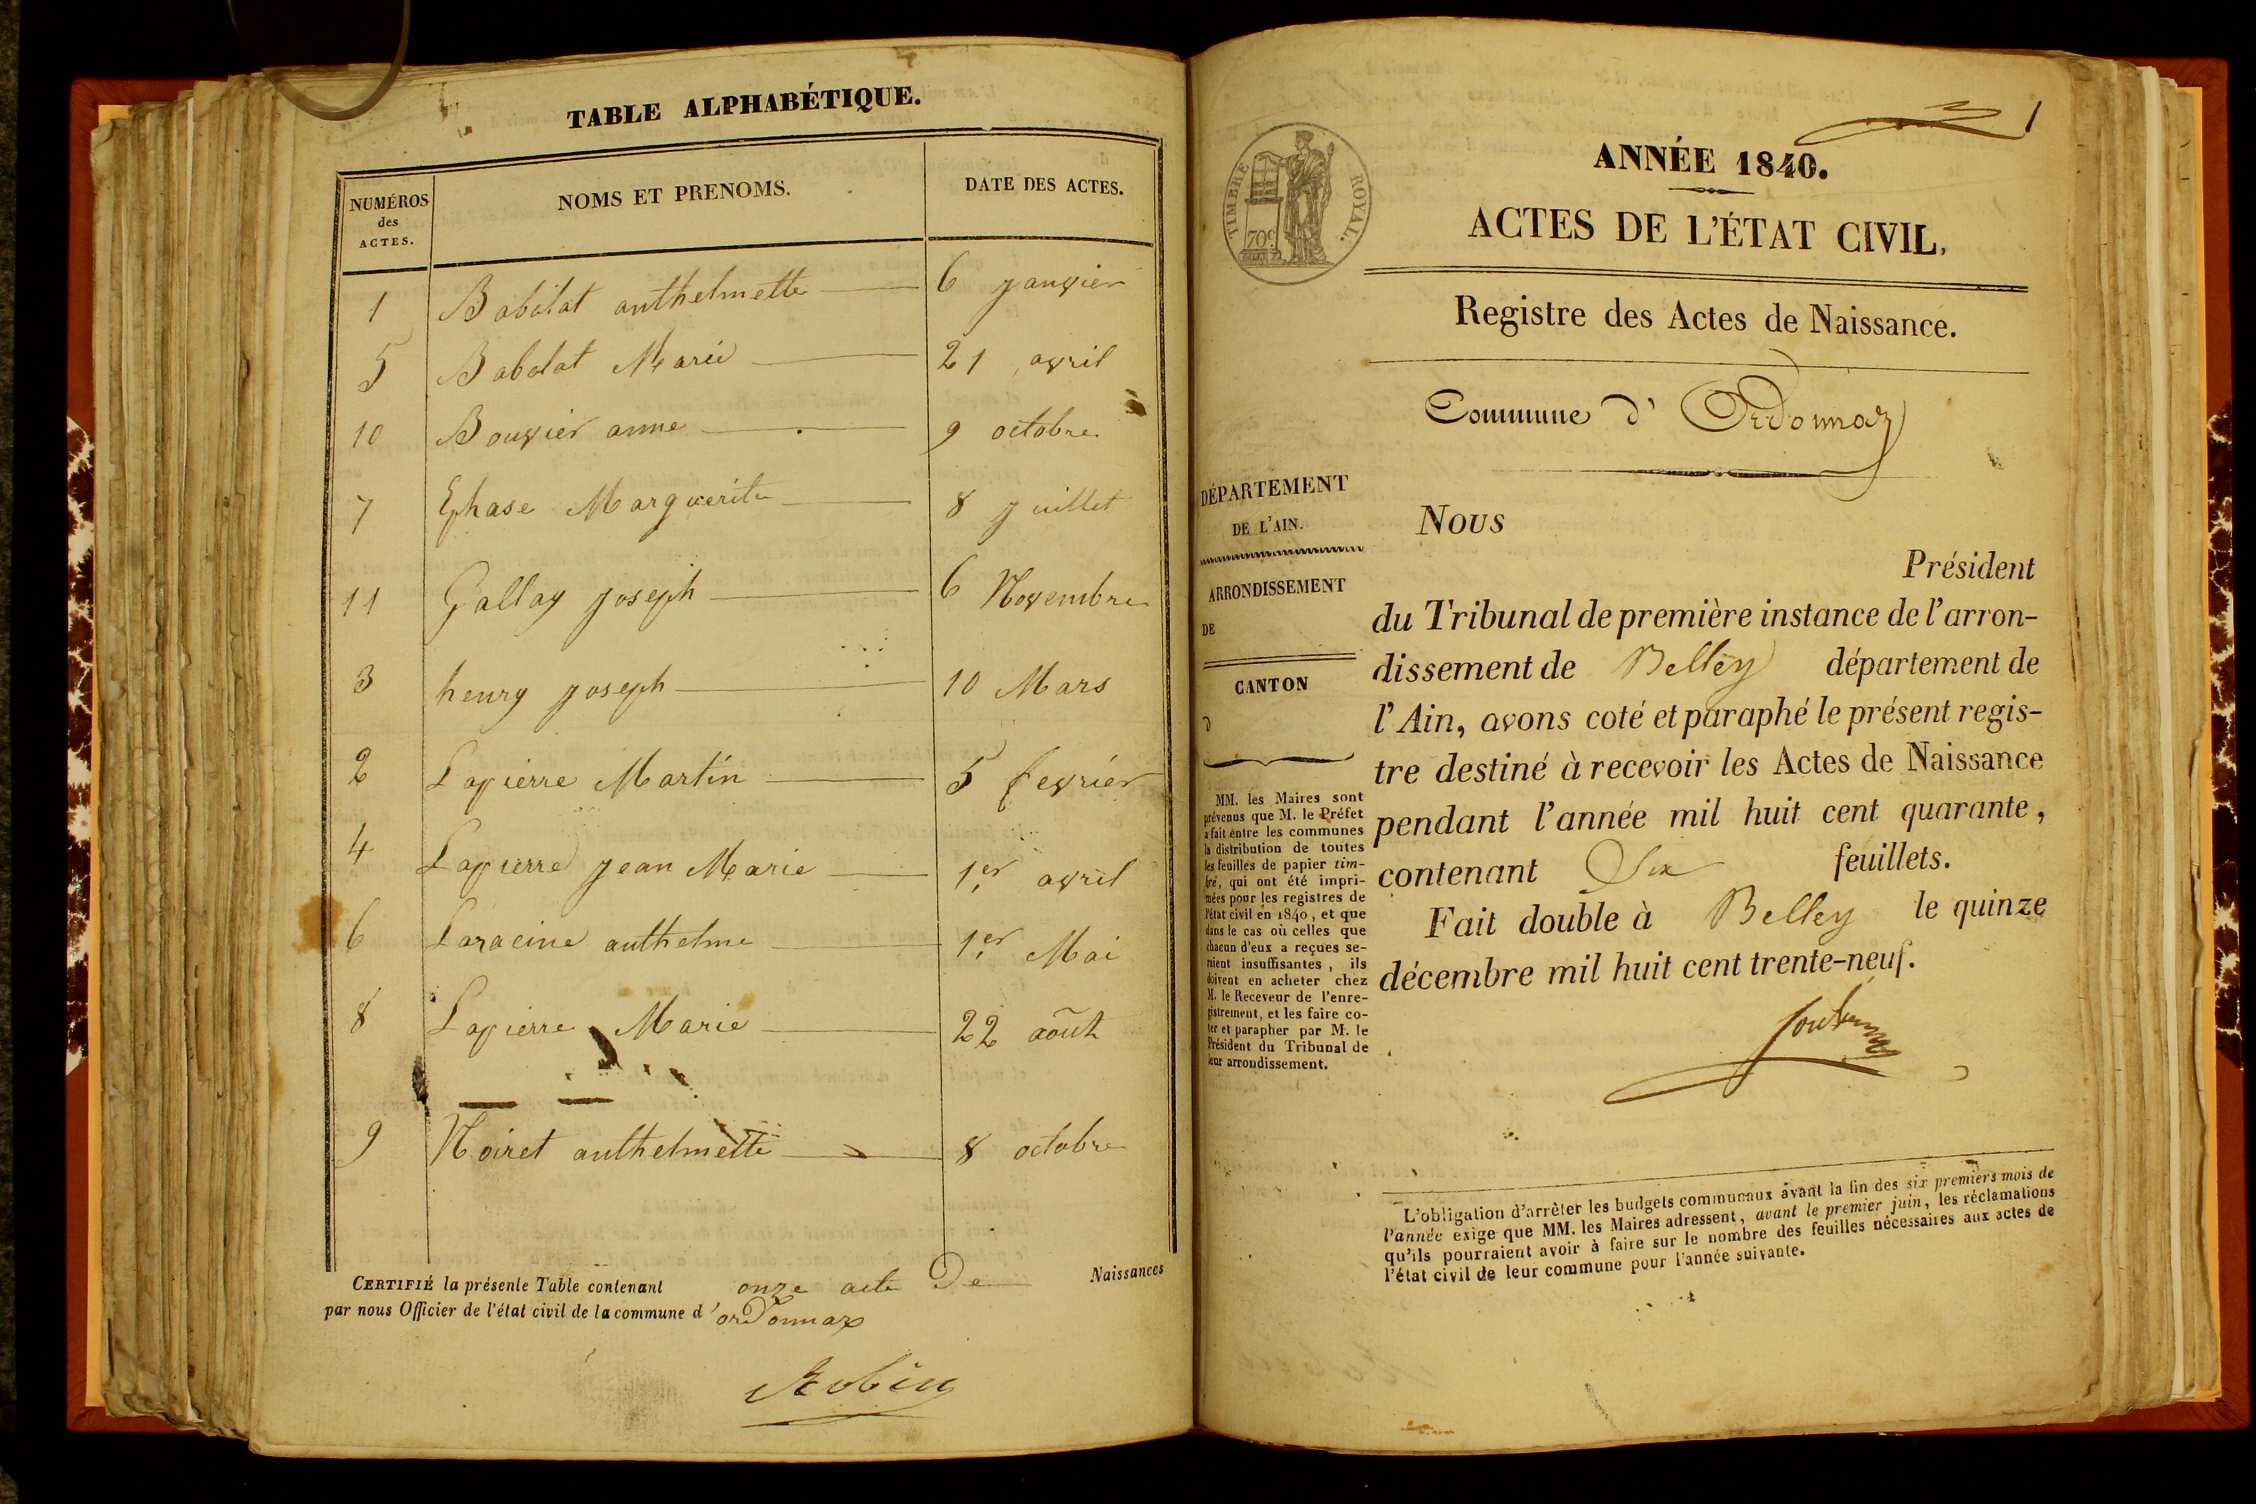 TABLE ALPHABÉTIQUE.
NUMÉROS des ACTES. NOMS ET PRENOMS. DATE DES ACTES.
1 Babolat anthelmette 6 janvier
5 Babolat Marie 21 avril
10 Bouvier anne 9 octobre
7 Ephase Marguerite 8 juillet
11 Gallay joseph 6 Novembre
3 henry joseph 10 Mars
2 Lapierre Martin 5 fevrier
4 Lapierre jean Marie 1er avril
6 Laracine anthelme 1er Mai
8 Lapierre Marie 22 août
9 Noiret anthelmette 8 octobre
CERTIFIÉ la présente Table contenant onze acte De Naissances
par nous Officier de l'état civil de la commune d'ordonnaz
Robin
1
TIMBRE ROYAL.
70c
ANNÉE 1840.
ACTES DE L'ÉTAT CIVIL,
Registre des Actes de Naissance.
Commune d' Ordonnaz
DÉPARTEMENT
DE L'AIN.
ARRONDISSEMENT
DE
CANTON
d
MM. les Maires sont
prévenus que M. le Préfet
a fait entre les communes
la distribution de toutes
les feuilles de papier tim-
bré, qui ont été impri-
mées pour les registres de
l'état civil en 1840, et que
dans le cas où celles que
chacun d'eux a reçues se-
raient insuffisantes, ils
doivent en acheter chez
M. le Receveur de l'enre-
gistrement, et les faire co-
ter et parapher par M. le
Président du Tribunal de
leur arrondissement.
Nous
Président
du Tribunal de première instance de l'arron-
dissement de Belley département de
l'Ain, avons coté et paraphé le présent regis-
tre destiné à recevoir les Actes de Naissance
pendant l'année mil huit cent quarante,
contenant Six feuillets.
Fait double à Belley le quinze
décembre mil huit cent trente-neuf.
L'obligation d'arrêter les budgets communaux avant la fin des six premiers mois de
l'année exige que MM. les Maires adressent, avant le premier juin, les réclamations
qu'ils pourraient avoir à faire sur le nombre des feuilles nécessaires aux actes de
l'état civil de leur commune pour l'année suivante.